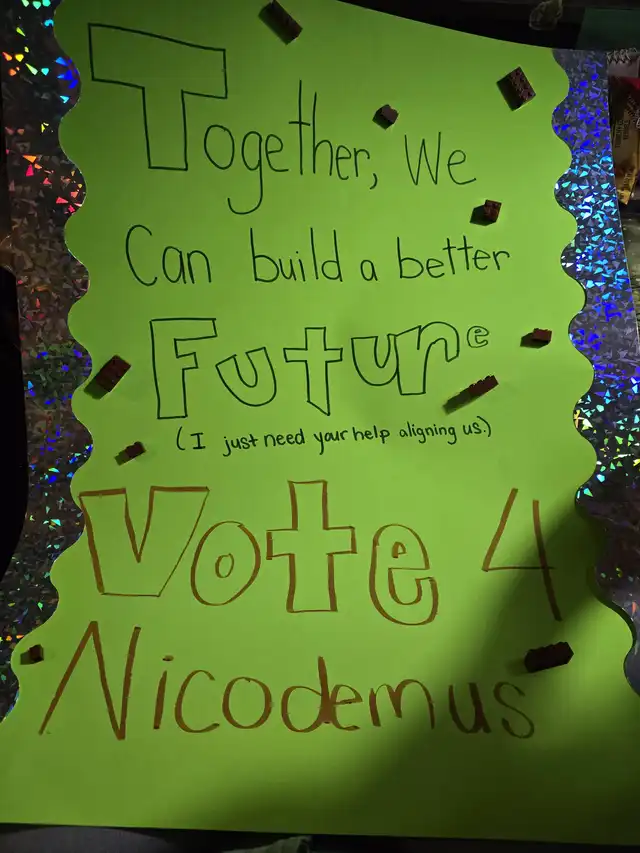 Together, We
Can build a better
Future
(I just need your help aligning us.)
Vote 4
Nicodemus